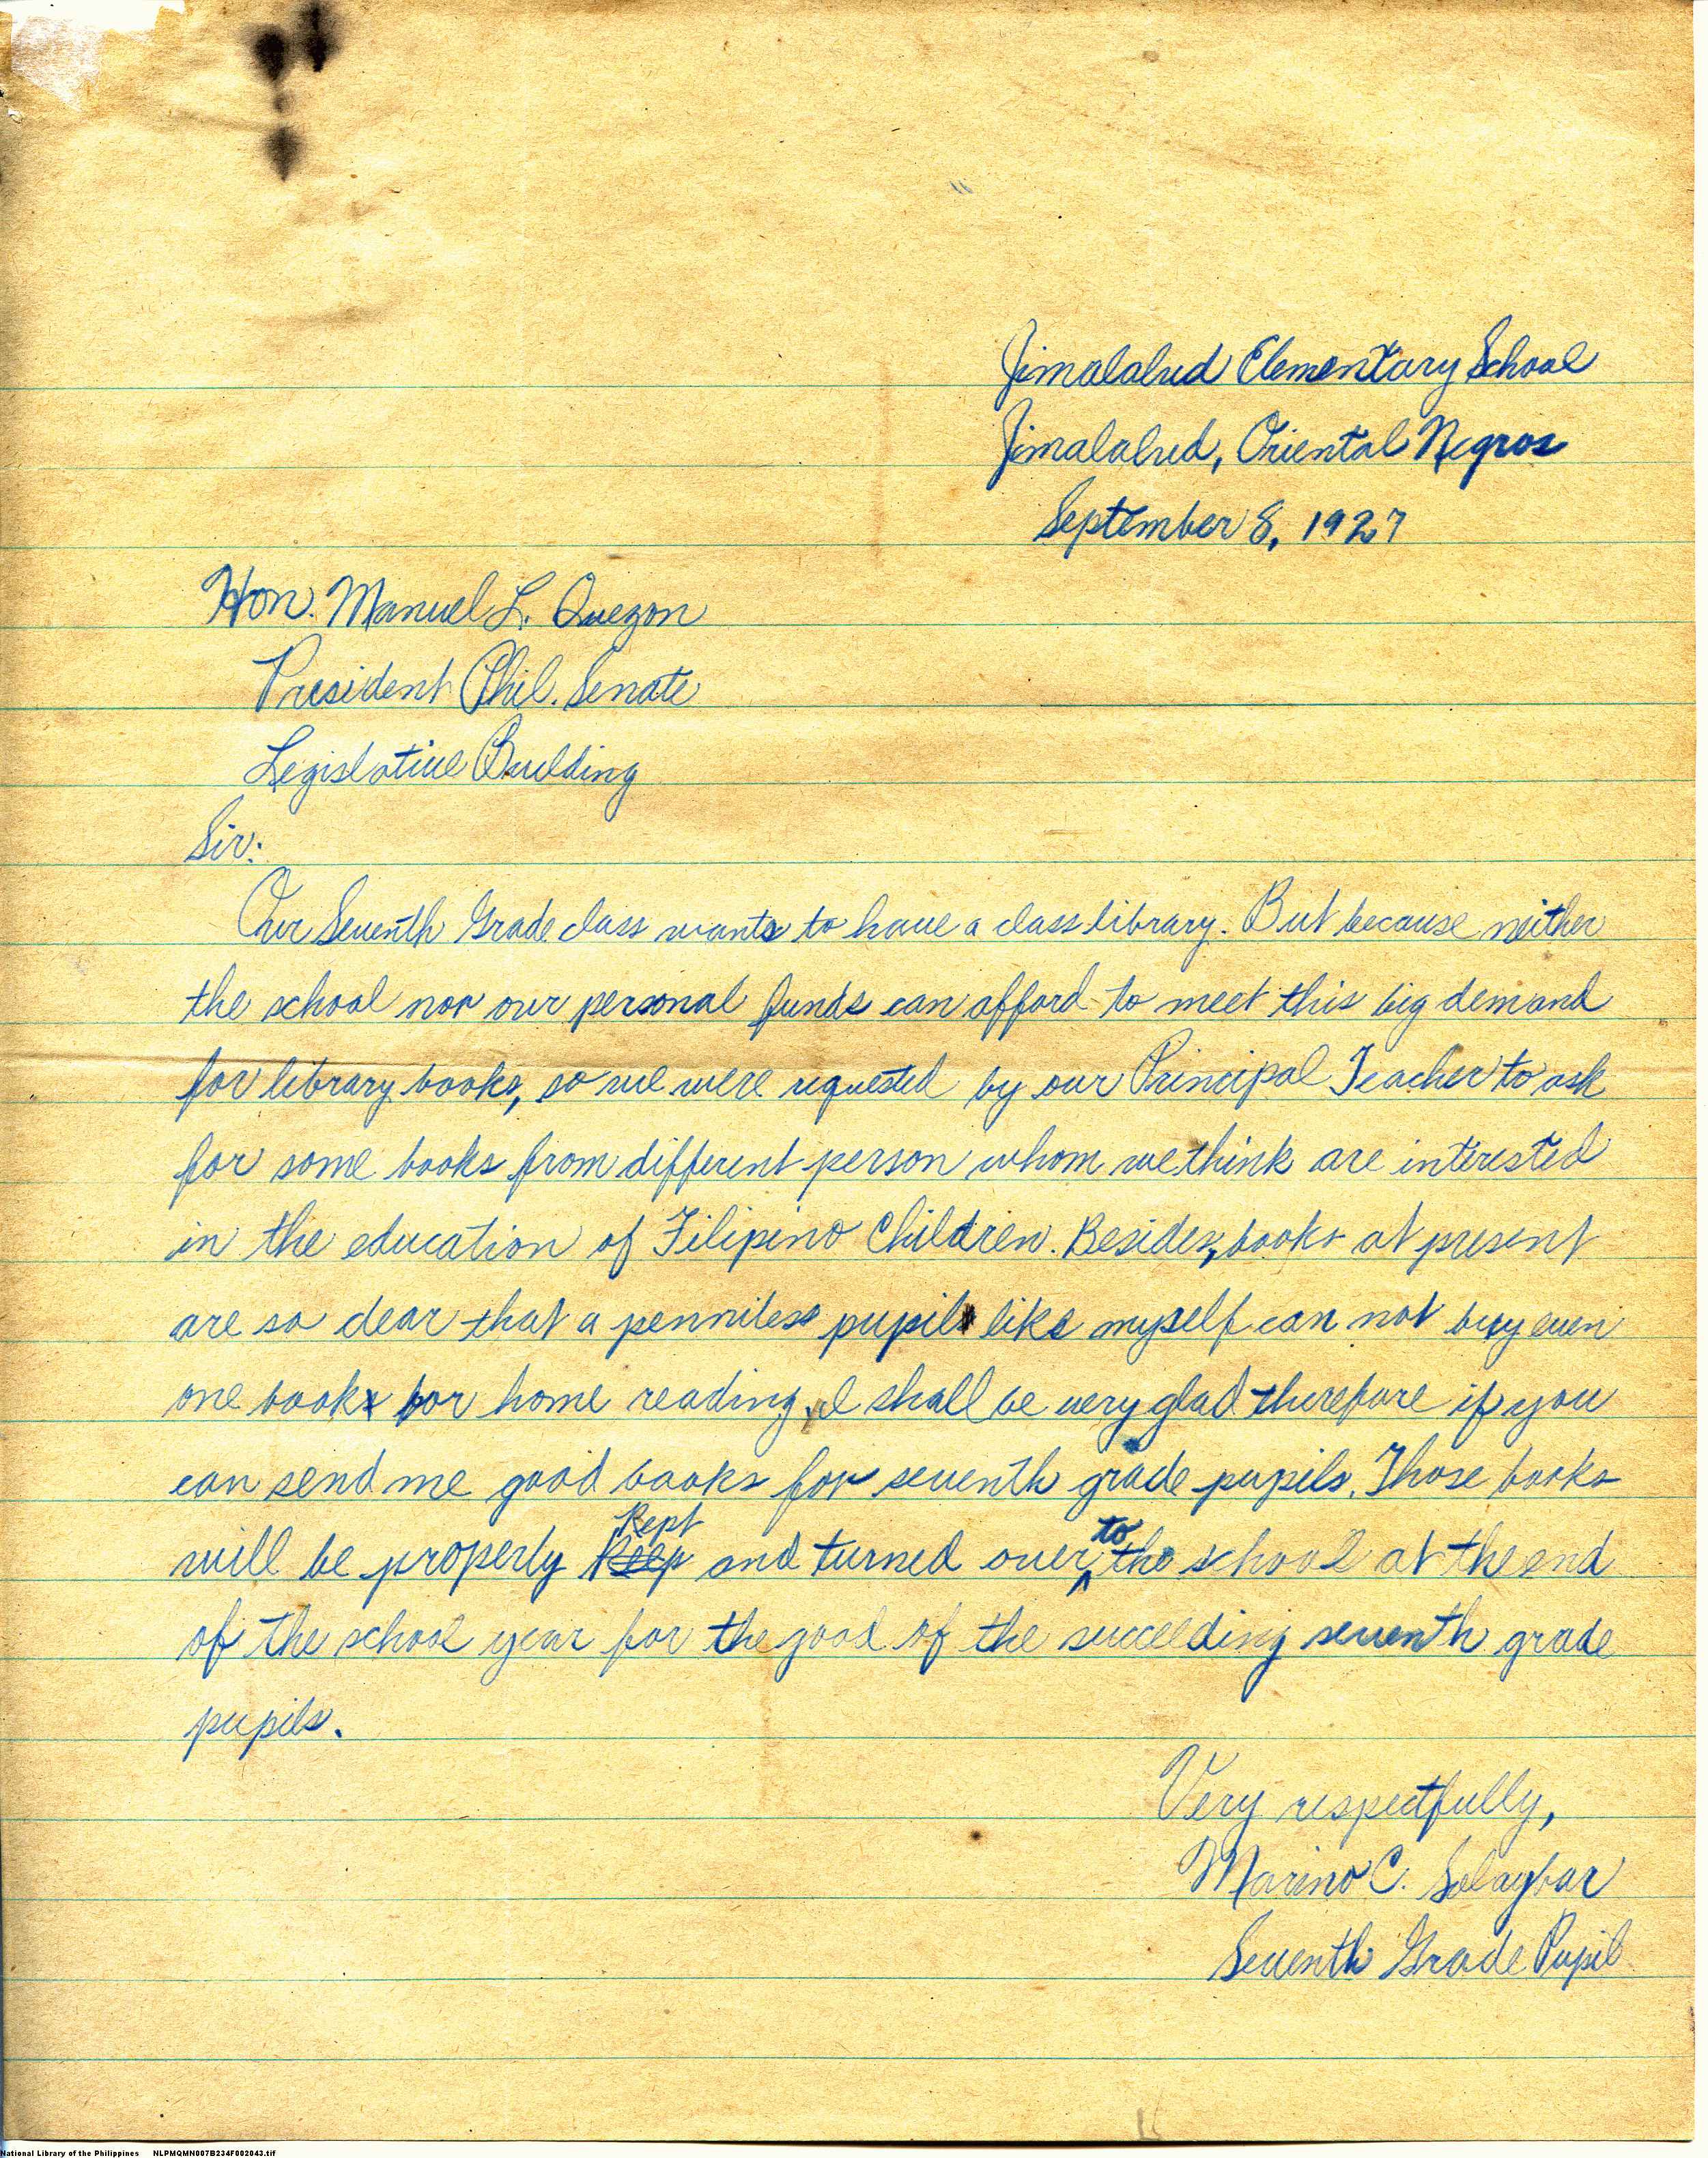 Jimalalud Elementary School
Jimalalud, Oriental Negros
September 8, 1927
Hon. Manuel L. Quezon
President Phil. Senate
Legislative Building
Sir:
Our Seventh Grade class wants to have a class library. But because neither
the school nor our personal funds can afford to meet this big demand
for library books, so we were requested by our Principal Teacher to ask
for some books from different person whom we think are interested
in the education of Filipino Children. Besides, books at present
are so dear that a penniless pupil like myself can not buy even
one book for home reading. I shall be very glad therefore if you
can send me good books for seventh grade pupils. Those books
will be properly Keep Kept and turned over, to the school at the end
of the school year for the good of the succeeding seventh grade
pupils.
Very respectfully,
Marino C. Solaybar
Seventh Grade Pupil
National Library of the Philippines NLPMQMN007B234F002043.tif